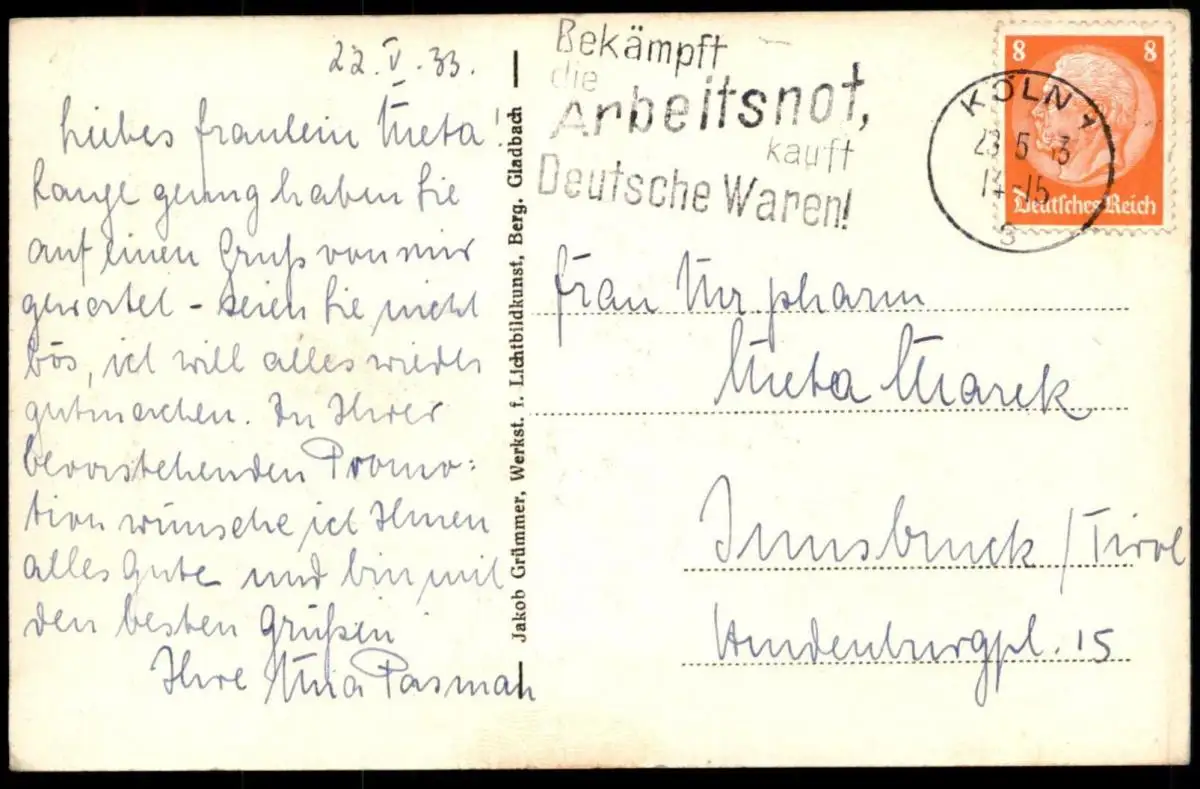 22.V.33.
Liebes Fräulein Meta!
Lange genug haben Sie
auf einen Gruß von mir
gewartet - seien Sie nicht
bös, ich will alles wieder
gutmachen. Zu Ihrer
bevorstehenden Promo:
tion wünsche ich Ihnen
alles Gute und bin mit
den besten Grüßen
Ihre
Jakob Grümmer, Werkst. f. Lichtbildkunst, Berg. Gladbach
Bekämpft
die
Arbeitsnot,
kauft
Deutsche Waren!
8 8
Deutsches Reich
KÖLN 1
23.5.33
14-15
s
Frau Mr pharm
Meta Marek
Innsbruck / Tirol
Hindenburgpl. 15